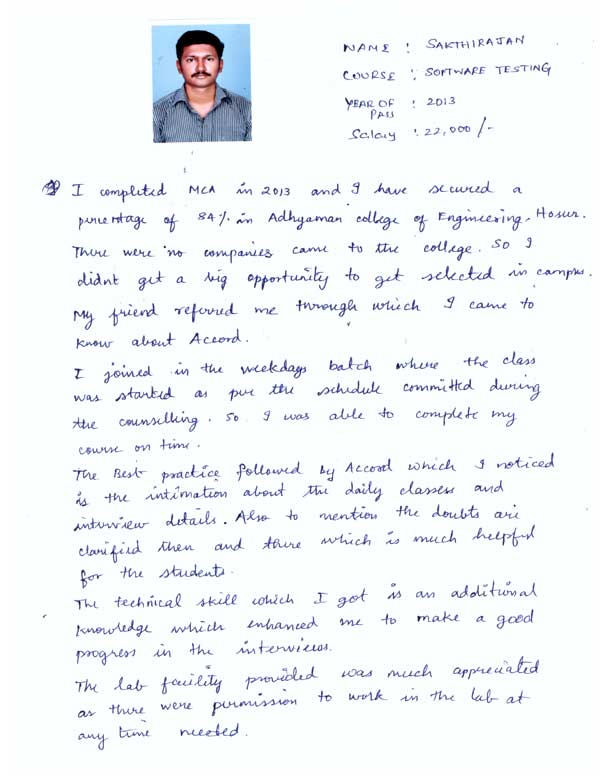 NAME : SAKTHIRAJAN
COURSE : SOFTWARE TESTING
YEAR OF PASS : 2013
Salary : 22,000/-
I completed MCA in 2013 and I have secured a
percentage of 84% in Adhyaman college of Engineering, Hosur.
There were no companies came to the college. So I
didnt get a big opportunity to get selected in campus.
My friend referred me through which I came to
know about Accord.
I joined in the weekdays batch where the class
was started as per the schedule committed during
the counselling. So I was able to complete my
course on time.
The Best practice followed by Accord which I noticed
is the intimation about the daily classes and
interview details. Also to mention the doubts are
clarified then and there which is much helpful
for the students.
The technical skill which I got is an additional
knowledge which enhanced me to make a good
progress in the interviews.
The lab facility provided was much appreciated
as there were permission to work in the lab at
any time needed.